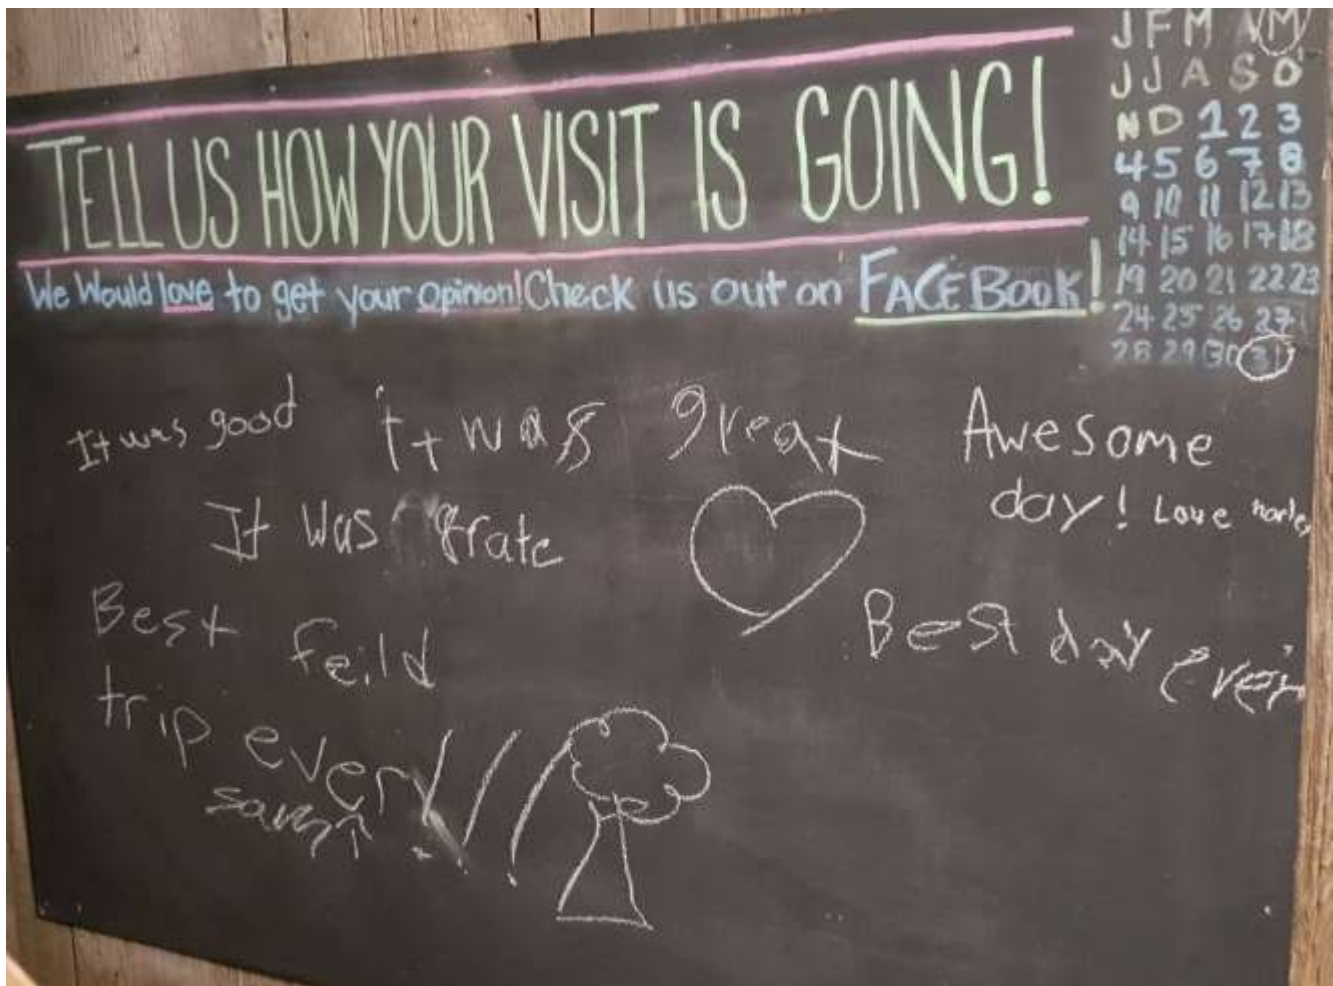 TELL US HOW YOUR VISIT IS GOING!
We Would love to get your opinion! Check us out on FACEBOOK!
J F M M
J J A S O
N D 1 2 3
4 5 6 7 8
9 10 11 12 13
14 15 16 17 18
19 20 21 22 23
24 25 26 27
28 29 30 31
It was good
it was great
Awesome
day! Love
It was grate
Best feild
trip ever!!!!
Best day ever